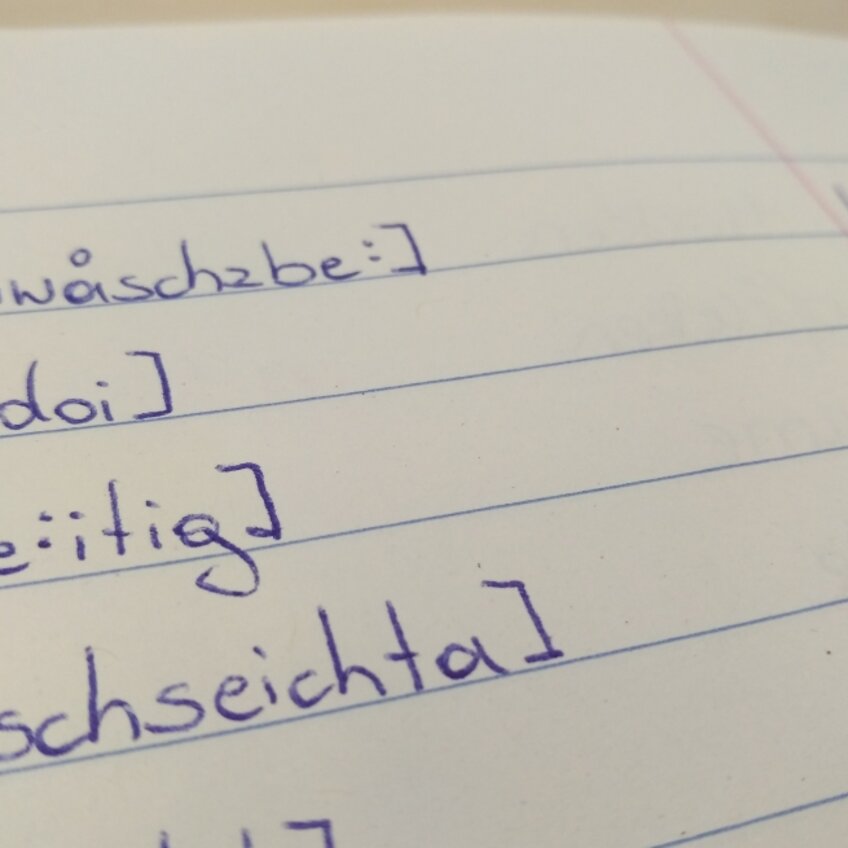 wåschzbe:]
doi]
e:itig]
schseichta]